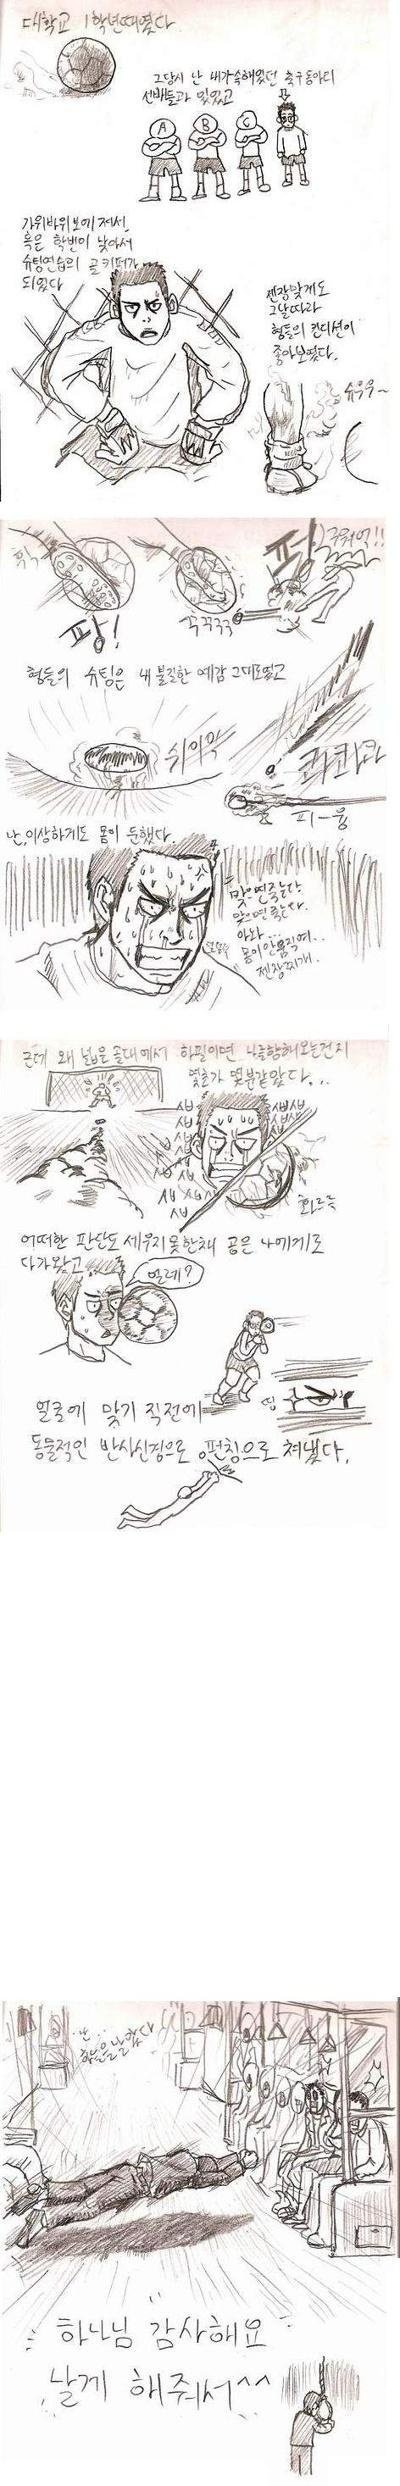 대학교 1학년때였다.
그당시 난 내가속해있던 축구동아리
선배들과 있었고
A
B
C
나
가위바위보에 져서,
혹은 학번이 낮아서
슈팅연습의 골키퍼가
되었다
젠장맞게도
그날따라
형들의 컨디션이
좋아보였다.
슈우우~
팡!
꾸꾸꾸
형들의 슈팅은 내 불길한 예감 그대로였고
쉬이익
콰콰콰
피-융
난, 이상하게도 몸이 둔했다
맞으면죽는다
맞으면죽는다.
아놔...
몸이안움직여...
젠장찌개.
근데 왜 넓은 골대에서 하필이면 나를향해오는건지
몇초가 몇분같았다...
화르륵
어떠한 판단도 세우지못한채 공은 나에게로
다가왔고
얼레?
얼굴에 맞기 직전에
띵
동물적인 반사신경으로 펀칭으로 쳐냈다.
난...
하늘을날았다
하나님 감사해요
날게 해줘서^^